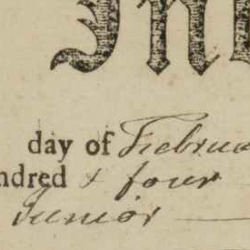 In
day of Februa
ndred & four
Junior